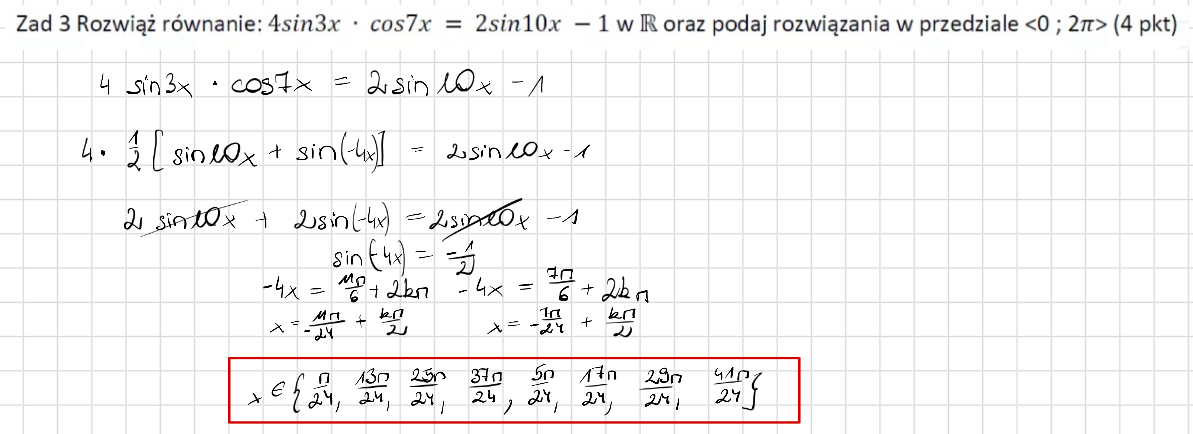 Zad 3 Rozwiąż równanie: 4sin3x · cos7x = 2sin10x − 1 w ℝ oraz podaj rozwiązania w przedziale <0 ; 2π> (4 pkt)
4 sin3x · cos7x = 2sin10x -1
4· 1/2 [sin10x + sin(-4x)] = 2sin10x -1
2 sin10x + 2sin(-4x) = 2sin10x -1
sin(-4x) = -1/2
-4x = 11π/6 + 2kπ -4x = 7π/6 + 2kπ
x = -11π/24 + kπ/2 x = -7π/24 + kπ/2
x ∈ {π/24, 13π/24, 25π/24, 37π/24, 5π/24, 17π/24, 29π/24, 41π/24}